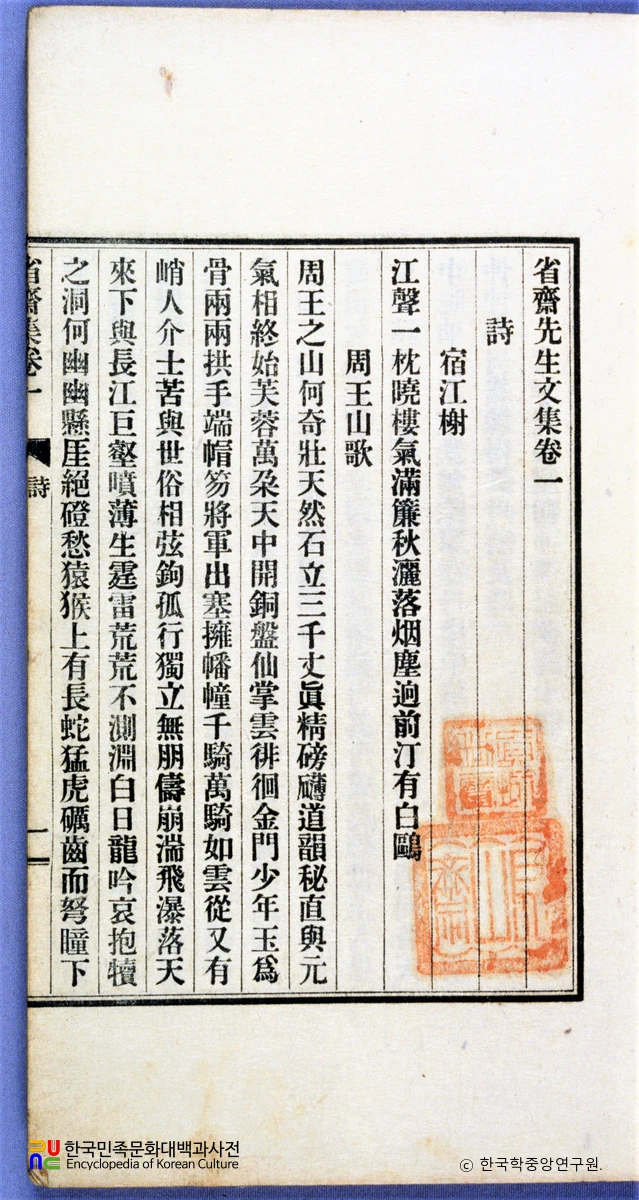 省齋先生文集卷一
詩
宿江榭
江聲一枕曉樓氣滿簾秋灑落烟塵逈前汀有白鷗
周王山歌
周王之山何奇壯天然石立三千丈眞精磅礴道韻秘直與元
氣相終始芙蓉萬朶天中開銅盤仙掌雲徘徊金門少年玉爲
骨兩兩拱手端帽笏將軍出塞擁幡幢千騎萬騎如雲從又有
峭人介士苦與世俗相弦鉤孤行獨立無朋儔崩湍飛瀑落天
來下與長江巨壑噴薄生霆雷荒荒不測淵白日龍吟哀抱犢
之洞何幽幽懸厓絕磴愁猿猴上有長蛇猛虎礪齒而弩瞳下
省齋集卷一 詩 二
한국민족문화대백과사전
Encyclopedia of Korean Culture
© 한국학중앙연구원.